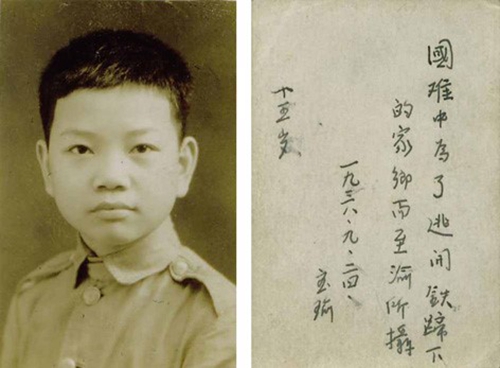 國难中為了逃開鉄蹄下
的家鄉而至渝所攝
一九三八、九、二四、
十五岁